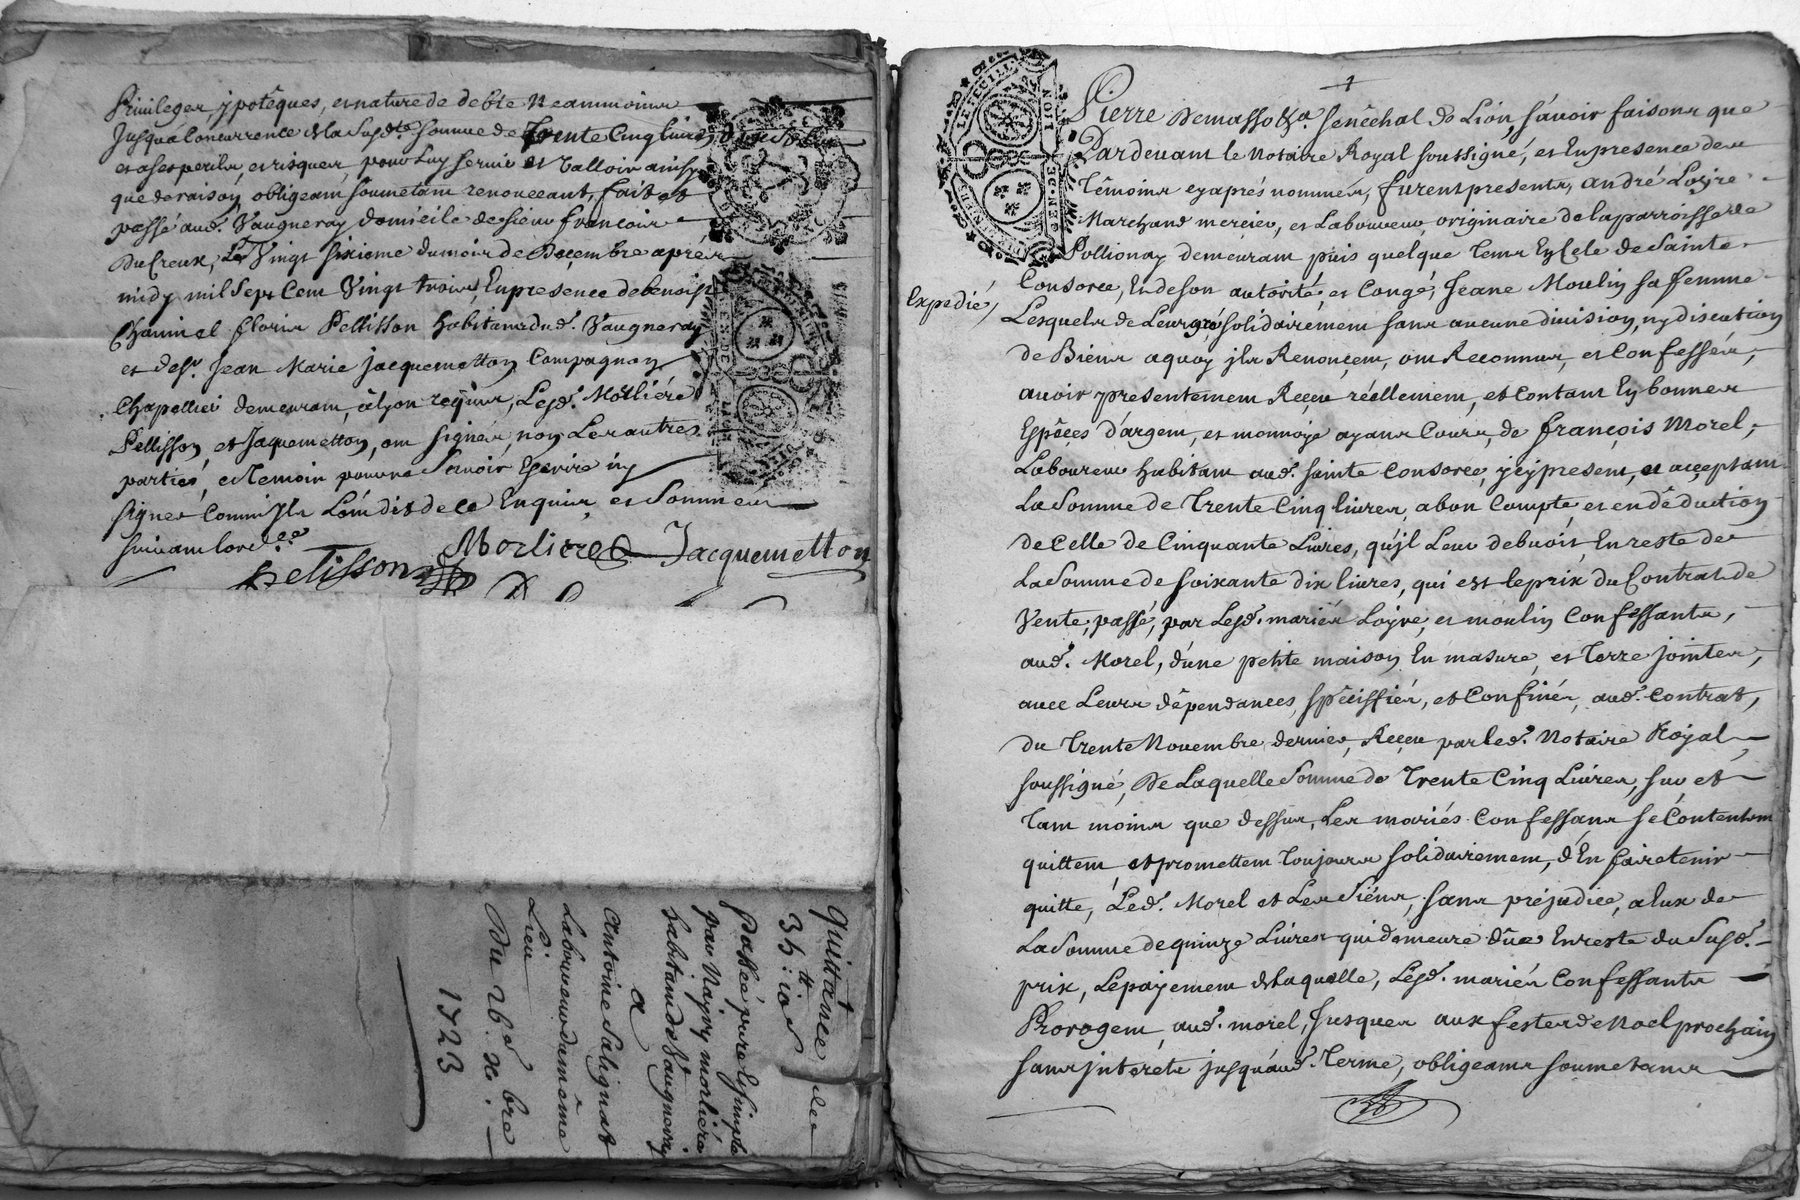 Privileges, ypotêques, et nature de debte Neammoins
Jusqua Concurrence de la Susd.te somme de Trente Cinq livres dix sols
et a ses perils, et risques, pour Luy servir et Valloir ainsy
que de raison, obligeant soumetant renonceant, fait et
passé aud. Vaugneray domicile de sieur françois
Ducreux, Le Vingt sixieme du mois de Decembre aprés
midy mil Sept Cent Vingt trois, En presence de benoist
Floris Pellisson habitans dud. Vaugneray
et de sr. Jean Marie Jacquemetton Compagnon
Chapellier demeurant, à Lyon requis, Lesd. Morliére
Pellisson, et Jaquemetton, ont signés, non Les autres
parties, et temoin pour ne Sçavoir Escrire ny
signer Comm'Jls L'ont dit de ce Enquis, et Sommés
suivant l'ord.ce
Pelisson Morliere Jacquemetton
Quittance de
35 tt: 10 s
Passée pure et simple
par Morliére
habitant de Vaugneray
a
Antoine Salignat
Laboureur du même
Lieu
Du 26.e xbre
1723
Pierre Demasso &a. senêchal de Lion, sçavoir faisons que
Pardevant le Notaire Royal soussigné, et En presence des
têmoins cy aprés nommés, furent presents, andré Loyre
Marchand mercier, et Laboureur, originaire de la parroisse de
Pollionay demeurant puis quelque tems En Cele de Sainte
Consorce, Et de son autorité, et Congé, Jeane Moulin sa femme
Expedié
Lesquels de Leur gré solidairement sans aucune division, ny discution
de Biens a quoy jls Renonçent, ont Reconnus, et Confessés,
avoir presentement Reçeu réellement, et Contant En bonnes
Espêçes d'argent, et monnoye ayans Cours, de françois Morel,
Laboureur habitant aud. sainte Consorce, jcy present, et acçeptant
La Somme de Trente Cinq livres, a bon Compte, et en dêduction
de Celle de Cinquante Livres, qu'jl Leur debvoit, En reste de
La Somme de soixante dix livres, qui est le prix du Contrat de
Vente, passé, par Lesd. mariés Loyre, et moulin Confessants,
aud. Morel, d'une petite maison En masure, et Terre jointes,
avec Leurs dêpendances, spêciffiés, et Confinés, aud. Contrat,
du Trente Novembre dernier, Reçeu par led. Notaire Royal
soussigné, De Laquelle Somme de Trente Cinq Livres, sur, et
tant moins que dessus, Les mariés Confessans se Contentent
quittent, et promettent toujours solidairement, d'En faire tenir
quitte, Led. Morel et Les Siens, sans préjudice, a Eux de
La Somme de quinze Livres qui demeure dûe En reste du Susd.
prix, Le payement de laquelle, Lesd. mariés Confessants
Prorogent, aud. morel, Jusques aux festes de Noel prochain
sans jnterêts jusqu'aud. Terme, obligeans soumetans